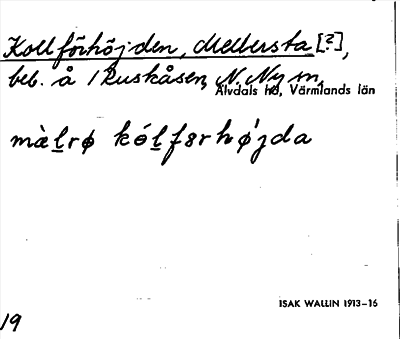 Kollförhöjden, Mellersta [?],
beb. å Ruskåsen, N. Ny sn,
Älvdals hd, Värmlands län
mæ̀l̠rø kɵ́l̠fɜrhǿjda
ISAK WALLIN 1913–16
19